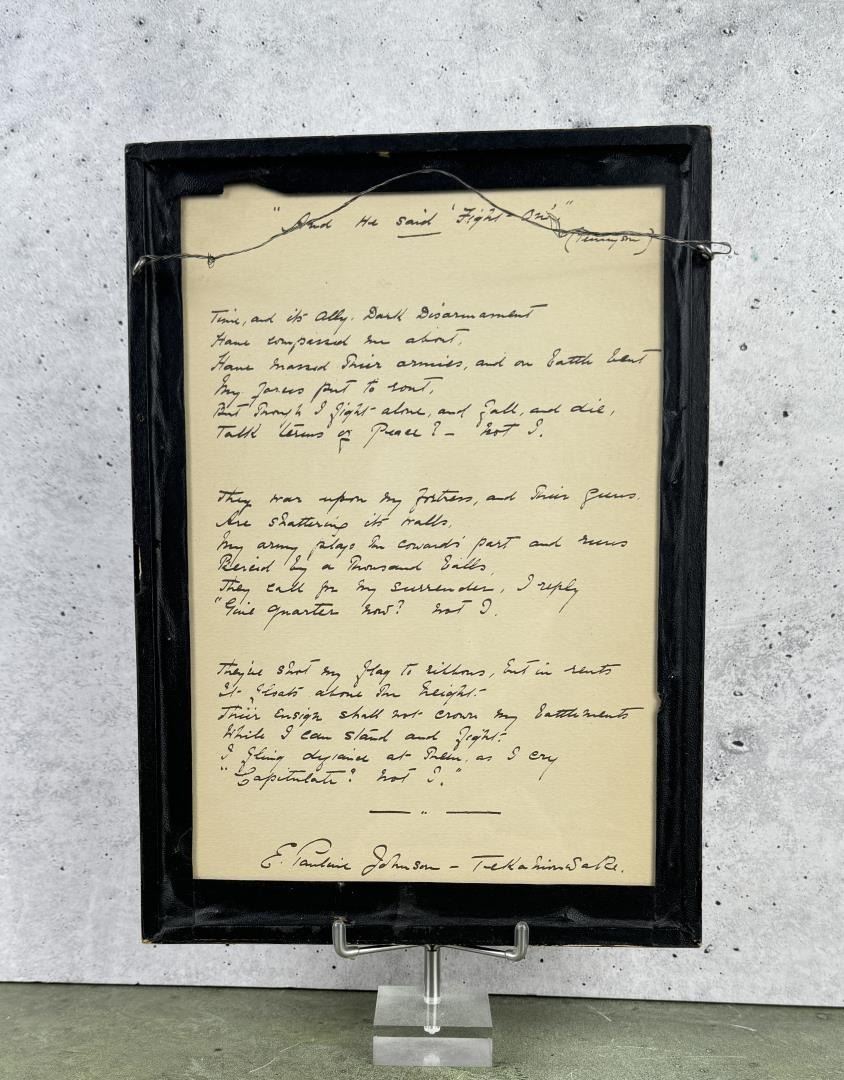 "And He said 'Fight On'"
(Tennyson)
Time, and its Ally, Dark Disarmament
Have compassed me about,
Have massed Their armies, and on Battle bent
My forces put to rout,
But Though I fight alone, and fall, and die,
Talk terms of Peace? – Not I.
They war upon my fortress, and Their guns
Are shattering its walls,
My army plays The cowards' part and runs
Pierc'd by a Thousand balls,
They call for my surrender, I reply
"Give quarter now? Not I.
They've shot my flag to ribbons, but in rents
It floats above The height.
Their ensign shall not crown my battlements
While I can stand and fight.
I fling defiance at Them, as I cry
"Capitulate? Not I."
E. Pauline Johnson – Tekahionwake.